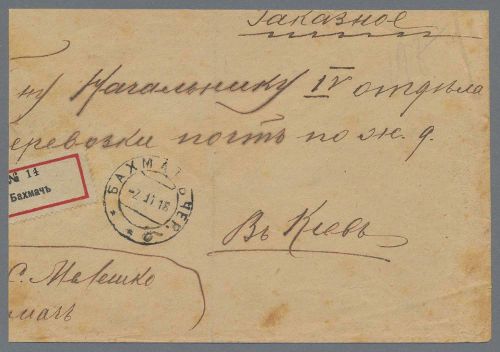 Заказное
ну Начальнику IV отдѣла
еревозки почтъ по ж. д.
№ 14
Бахмачъ
БАХМАЧЪ ЧЕР.
Въ Кіевъ
С. Матешко
мачъ